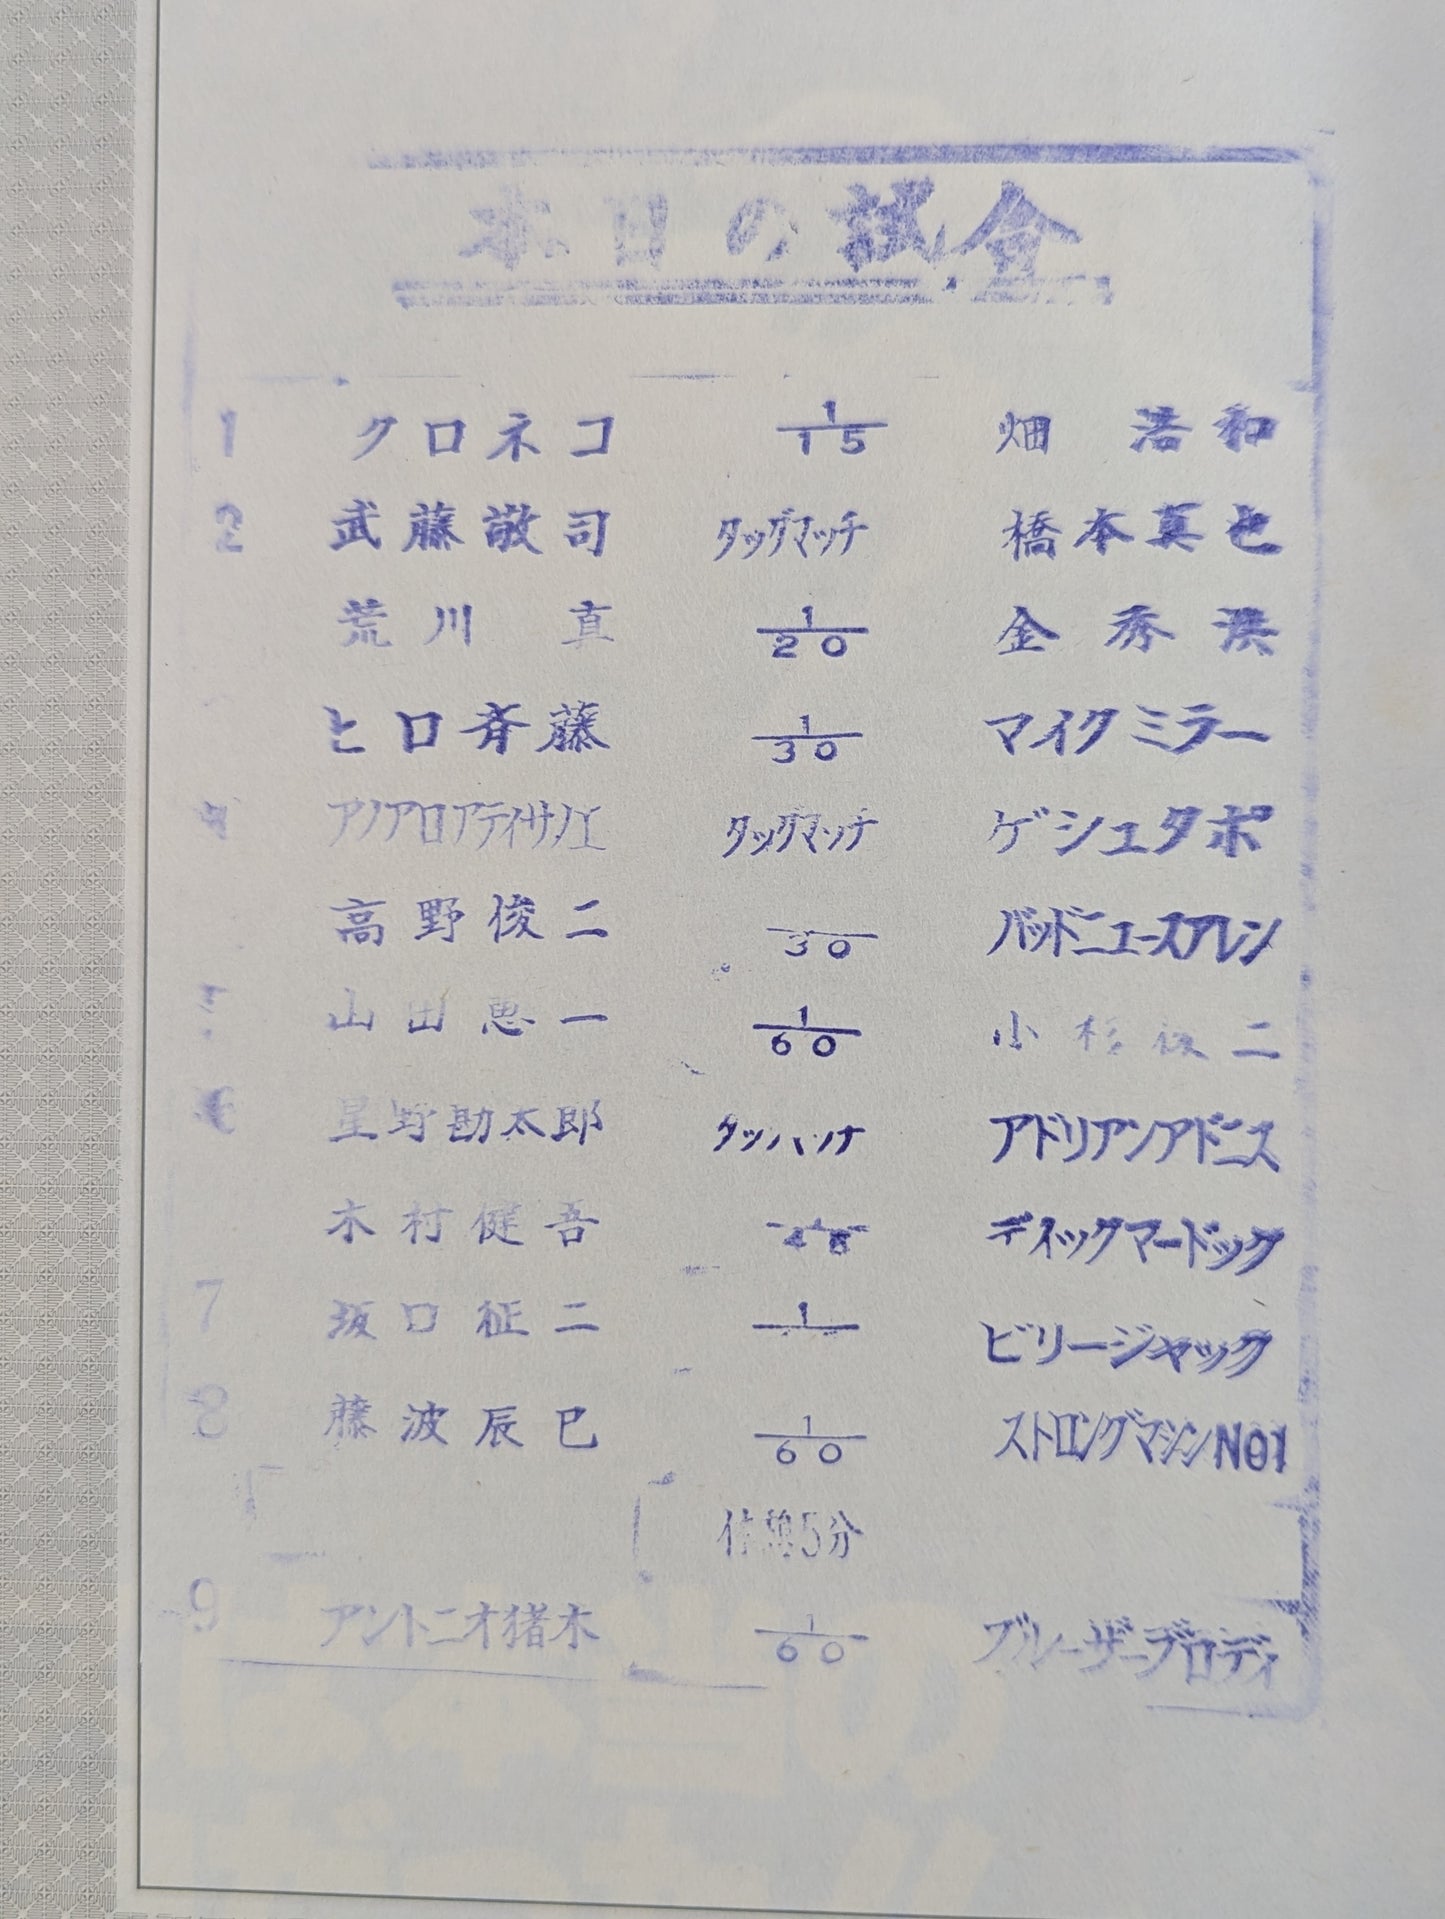 本日の試合
1 クロネコ 1/15 畑 浩和
2 武藤敬司 タッグマッチ 橋本真也
荒川 真 1/20 金秀洪
ヒロ斉藤 1/30 マイクミラー
4 タッグマッチ ゲシュタポ
高野俊二 30 バッドニュースアレン
山田恵一 1/60 小杉俊二
6 星野勘太郎 アドリアンアドニス
木村健吾 1/45 ディックマードック
7 坂口征二 1 ビリージャック
8 藤波辰巳 1/60 ストロングマシンNO1
休憩5分
9 アントニオ猪木 1/60 ブルーザーブロディ